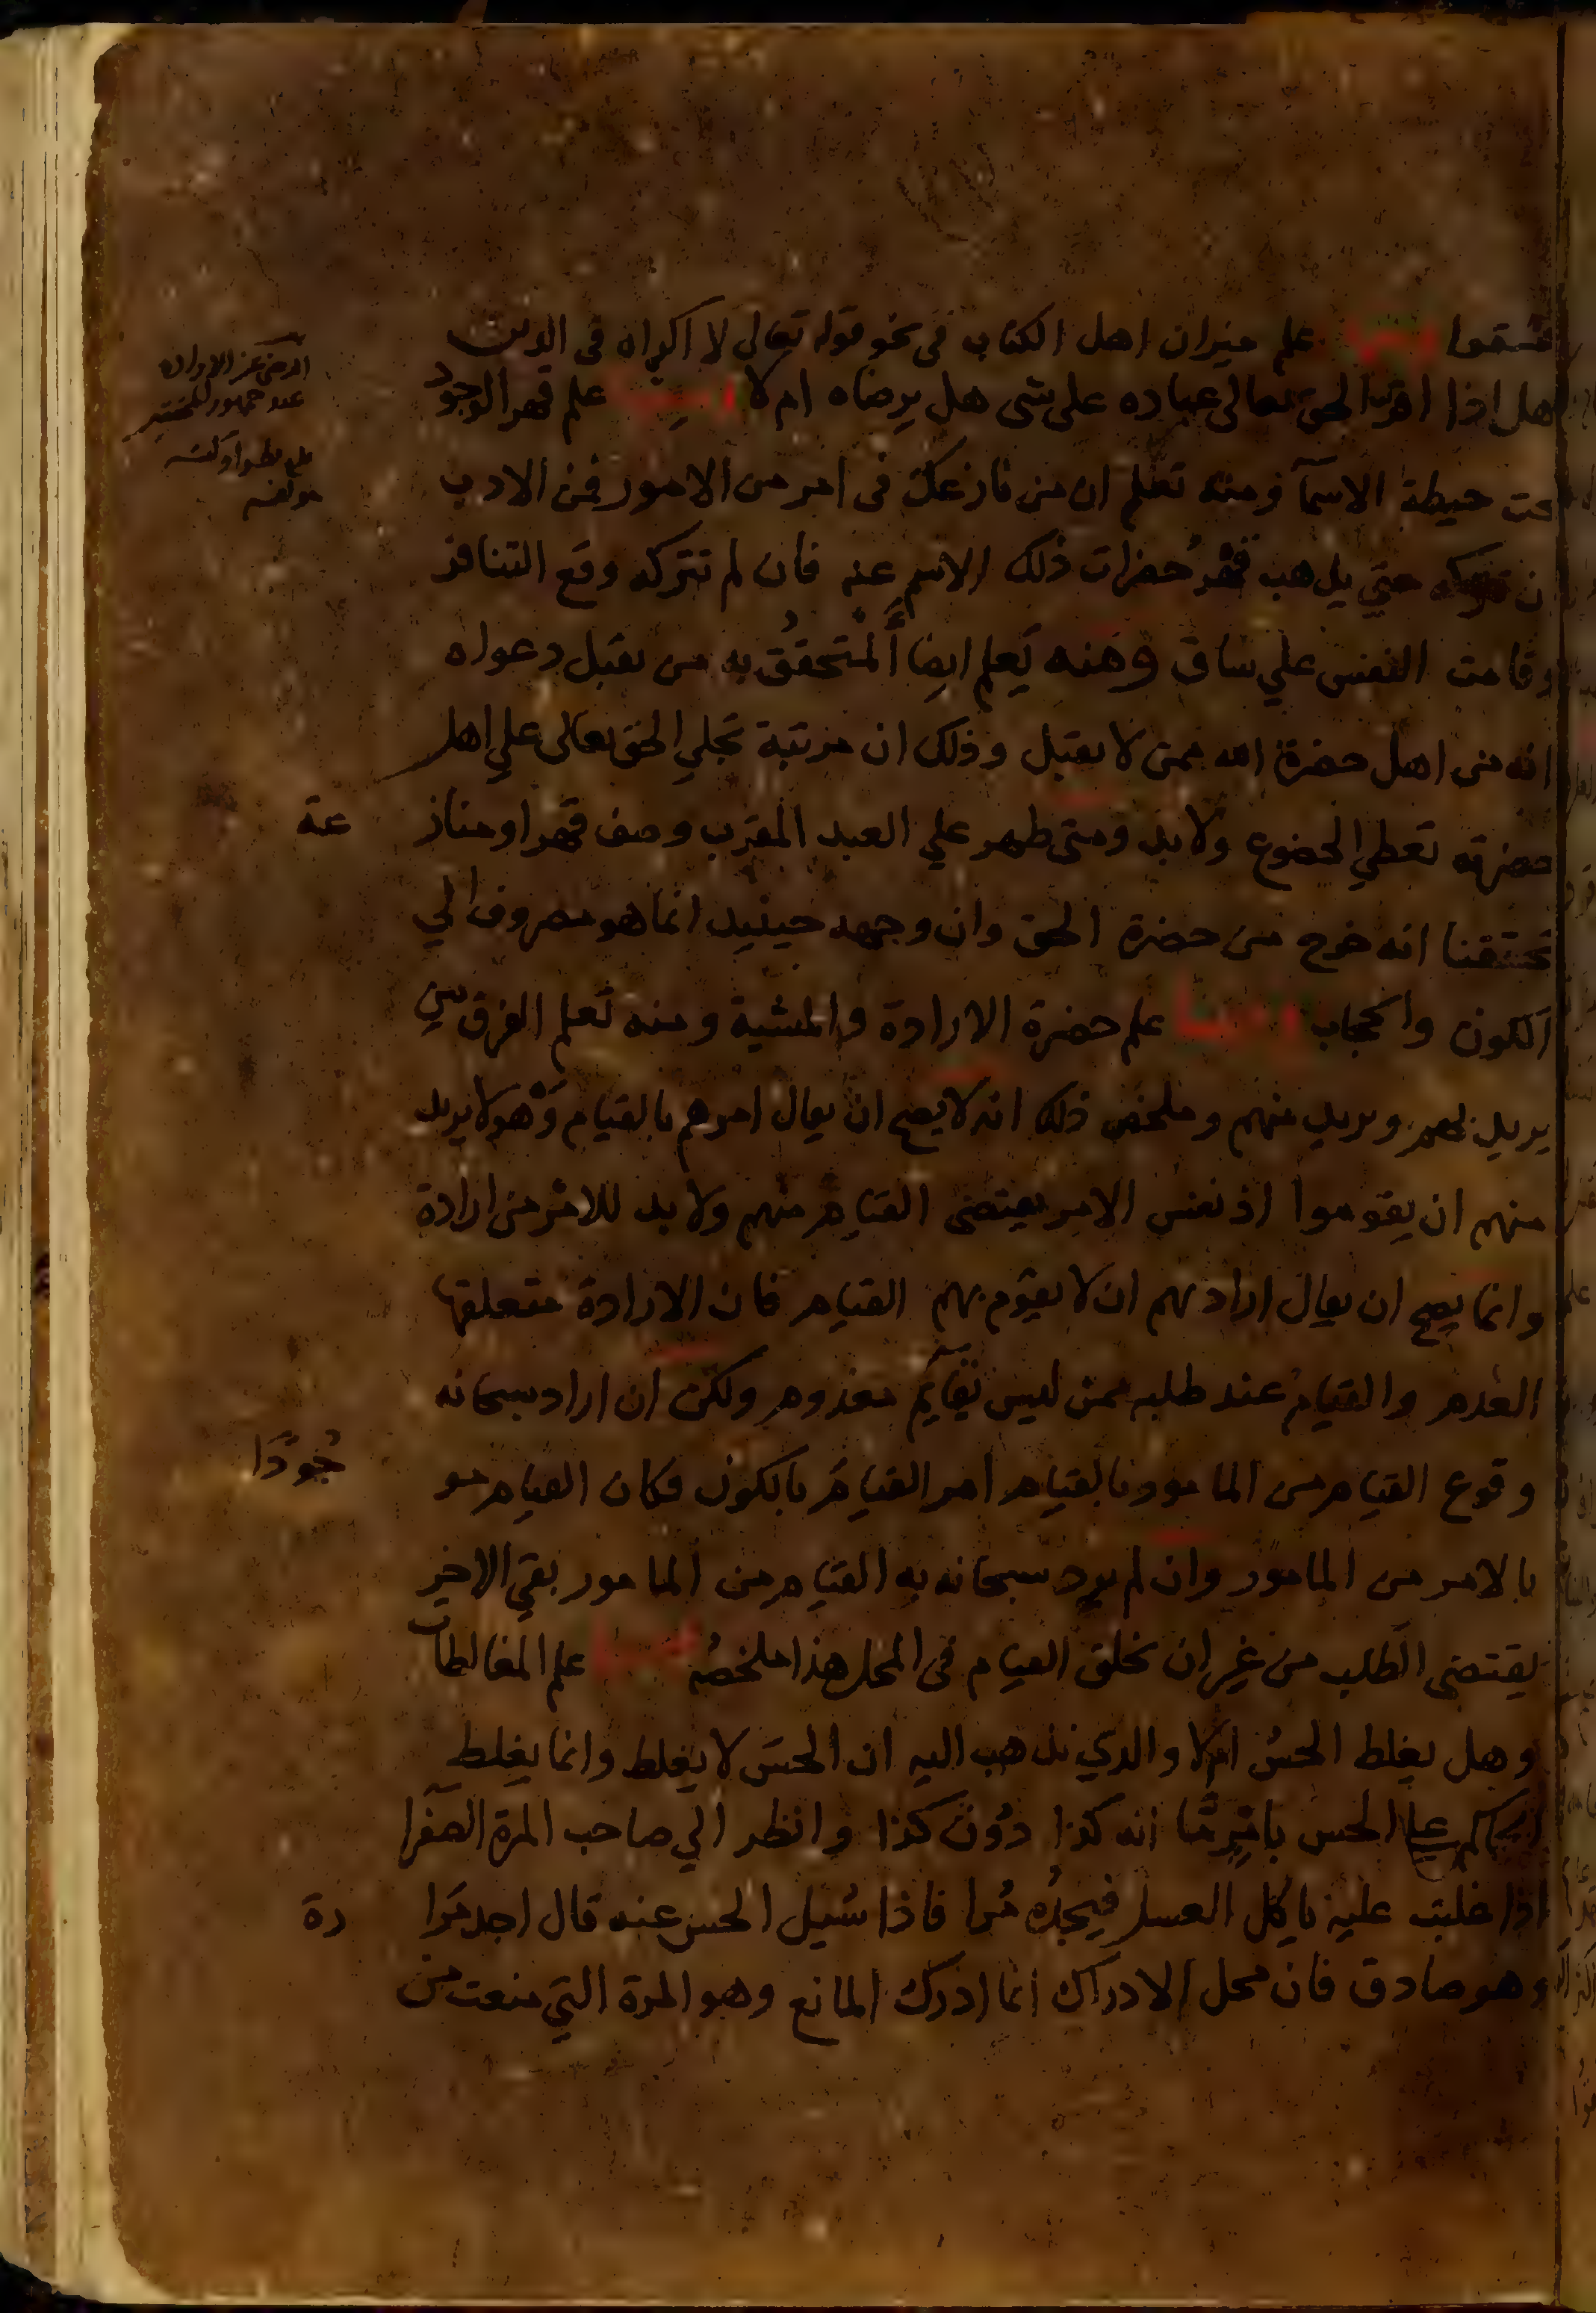 فسقوا ومنها علم ميزان اهل الكتاب فى نحو قوله تعالى لا اكراه فى الدين
هل اذا اقر الحق تعالى عباده على شى هل يرضاه ام لا ومنها علم قهر الوجود
تحت حيطة الاسمآ ومنه تعلم ان من نازعك فى امر من الامور فمن الادب
ان تتركه حتي يذهب قهر حضرات ذلك الاسم عنه فان لم تتركه وقع التنافر
وقامت النفس علي ساق ومنه يَعلم ايضا المتحقق به من يقبل دعواه
انه من اهل حضرة الله ممن لا يقبل وذلك ان مرتبة تجلي الحق تعالى علي اهل
حضرته تعطي الخضوع ولا بد ومتى ظهر علي العبد المقرب وصف قهر او مناز
عة
تحققنا انه خرج من حضرة الحق وان وجهه حينيد انما هو مصروف الي
الكون والحجاب ومنها علم حضرة الارادة والمشية ومنه تعلم الفرق بين
يريد بهم ويريد منهم وملخص ذلك انه لا يصح ان يقال امرهم بالقيام وهو لا يريد
منهم ان يقوموا اذ نفس الامر يقتضى القيام منهم ولا بد للامر من ارادة
وانما يصح ان يقال اراد بهم ان لا يقوم بهم القيام فان الارادة متعلقها
العدم والقيام عند طلبه ممن ليس بقايم معدوم ولكن ان اراد سبحانه
وقوع القيام من المامور بالقيام امر القيام بالكون فكان القيام مو
جودًا
بالامر من المامور وان لم يرد سبحانه به القيام من المامور بقي الامر
يقتضى الطلب من غير ان يخلق القيام فى المحل هذا ملخصه ومنها علم المغالطات
وهل يغلط الحس ام لا والذي نذهب اليه ان الحس لا يغلط وانما يغلط
الحاكم علي الحس انه كذا دون كذا وانظر الي صاحب المرة الصفرا
اذا غلبت عليه ياكل العسل فيجده مُرا فاذا سُيل الحس عنه قال اجد مَرا
رة
وهو صادق فان محل الادراك انما ادرك المانع وهو المرة التي منعت من